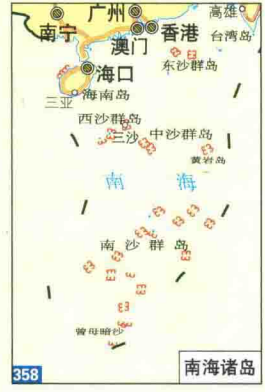 广州
高雄
南宁
澳门
香港
台湾岛
东沙群岛
海口
海南岛
三亚
西沙群岛
三沙
中沙群岛
黄岩岛
南海
南沙群岛
曾母暗沙
358
南海诸岛